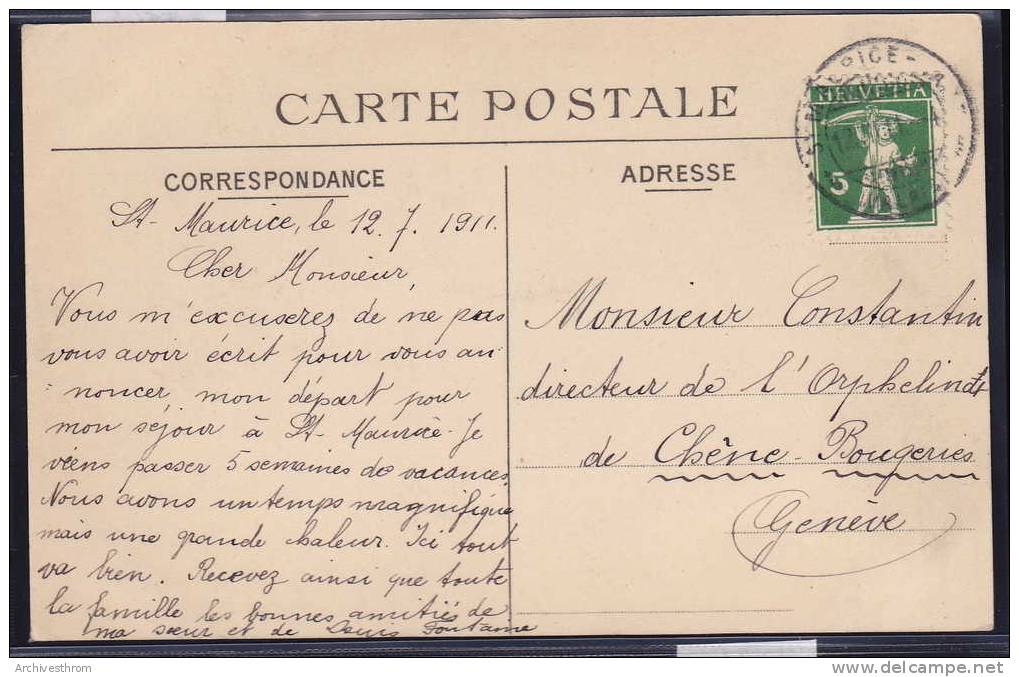 CARTE POSTALE
CORRESPONDANCE
St-Maurice, le 12. 7. 1911.
Cher Monsieur,
Vous m'excuserez de ne pas
vous avoir écrit pour vous an
noncer mon départ pour
mon séjour à St-Maurice. Je
viens passer 5 semaines de vacances.
Nous avons un temps magnifique
mais une grande chaleur. Ici tout
va bien. Recevez ainsi que toute
la famille les bonnes amitiés de
ma sœur et de Louis Fontaine
ADRESSE
HELVETIA
5
Monsieur Constantin
directeur de l'Orphelinat
de Chêne-Bougeries
Genève
Archivesthrom
delcampe.net